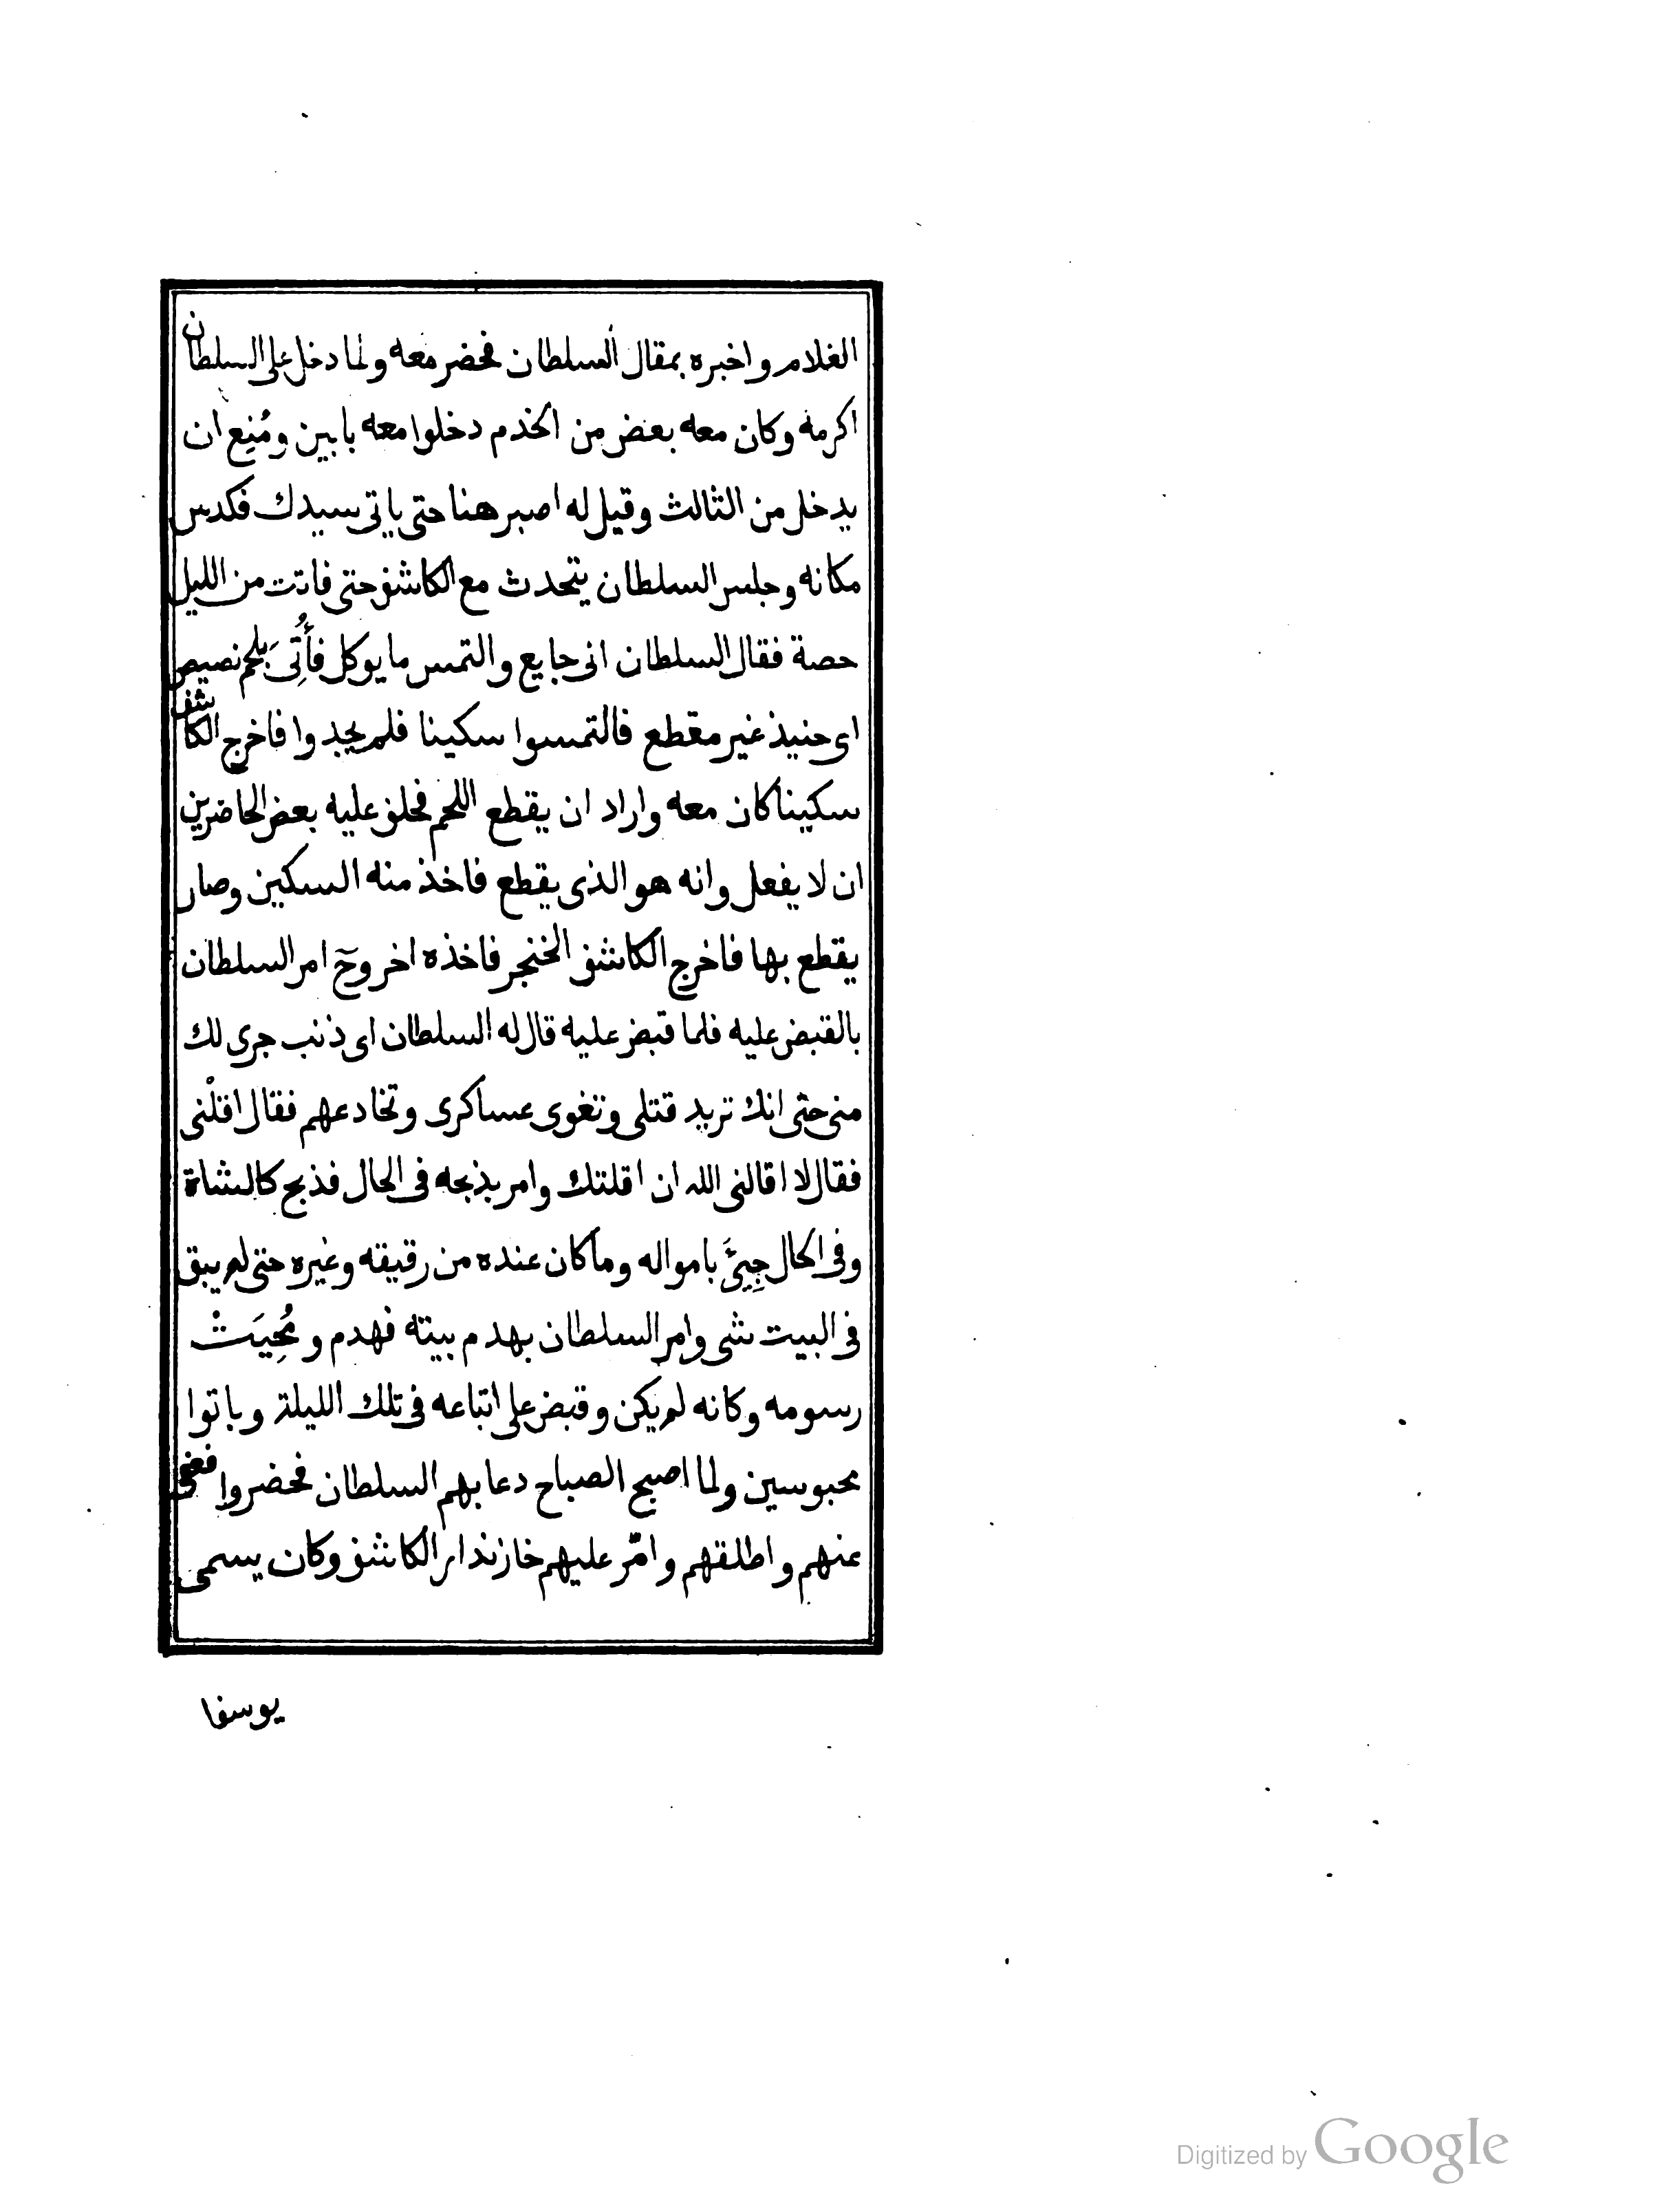 الغلام واخبره بمقال السلطان فحضر معه ولما دخل على السلطان
اكرمه وكان معه بعض من الخدم دخلوا معه بابين ومُنِع ان
يدخل من الثالث وقيل له اصبر هنا حتى ياتى سيدك فكدس
مكانه وجلس السلطان يتحدث مع الكاشف حتى فاتت من الليل
حصة فقال السلطان انى جايع والتمس ما يوكل فأُتِىَ بلحم نصيص
اى حنيذ غير مقطع فالتمسوا سكينا فلم يجدوا فاخرج الكاشف
سكينا كان معه واراد ان يقطع اللحم فحلف عليه بعض الحاضرين
ان لا يفعل وانه هو الذى يقطع فاخذ منه السكين وصار
يقطع بها فاخرج الكاشف الخنجر فاخذه اخر وحٓ امر السلطان
بالقبض عليه فلما قبض عليه قال له السلطان اى ذنب جرى لك
منى حتى انك تريد قتلى وتغوى عساكرى وتخادعهم فقال اقلْنى
فقال لا اقالنى الله ان اقلتك وامر بذبحه فى الحال فذبح كالشاة
وفى الحال جِىءَ بامواله وما كان عنده من رقيقه وغيره حتى لم يبق
فى البيت شى وامر السلطان بهدم بيته فهدم ومُحِيَتْ
رسومه وكانه لم يكن وقبض على اتباعه فى تلك الليلة وباتوا
محبوسين ولما اصبح الصباح دعا بهم السلطان فحضروا فعفى
عنهم واطلقهم وامّر عليهم خازندار الكاشف وكان يسمى
يوسفا
Digitized by Google